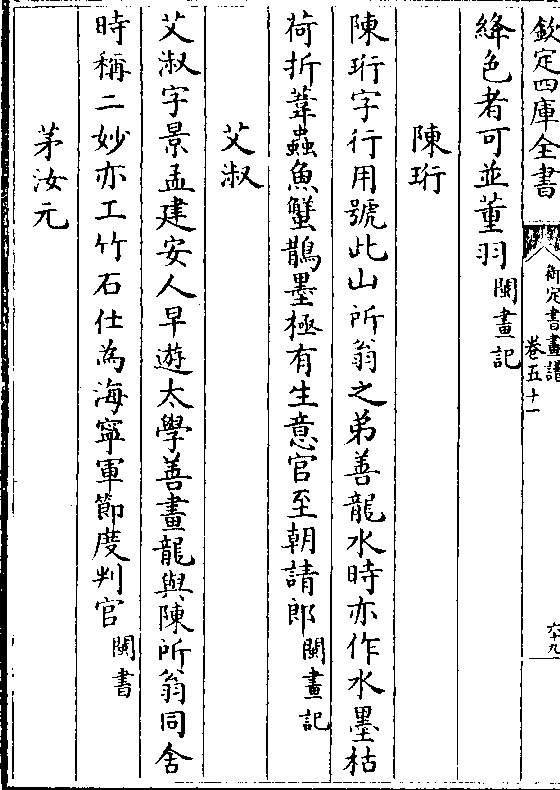 欽定四庫全書
御定書畫譜
卷五十一
六十九
絳色者可並董羽閩畫記
陳珩
陳珩字行用號此山所翁之弟善龍水時亦作水墨枯
荷折葦蟲魚蟹鵲墨極有生意官至朝請郎閩畫記
艾淑
艾淑字景孟建安人早遊太學善畫龍與陳所翁同舍
時稱二妙亦工竹石仕為海寧軍節度判官閩書
茅汝元